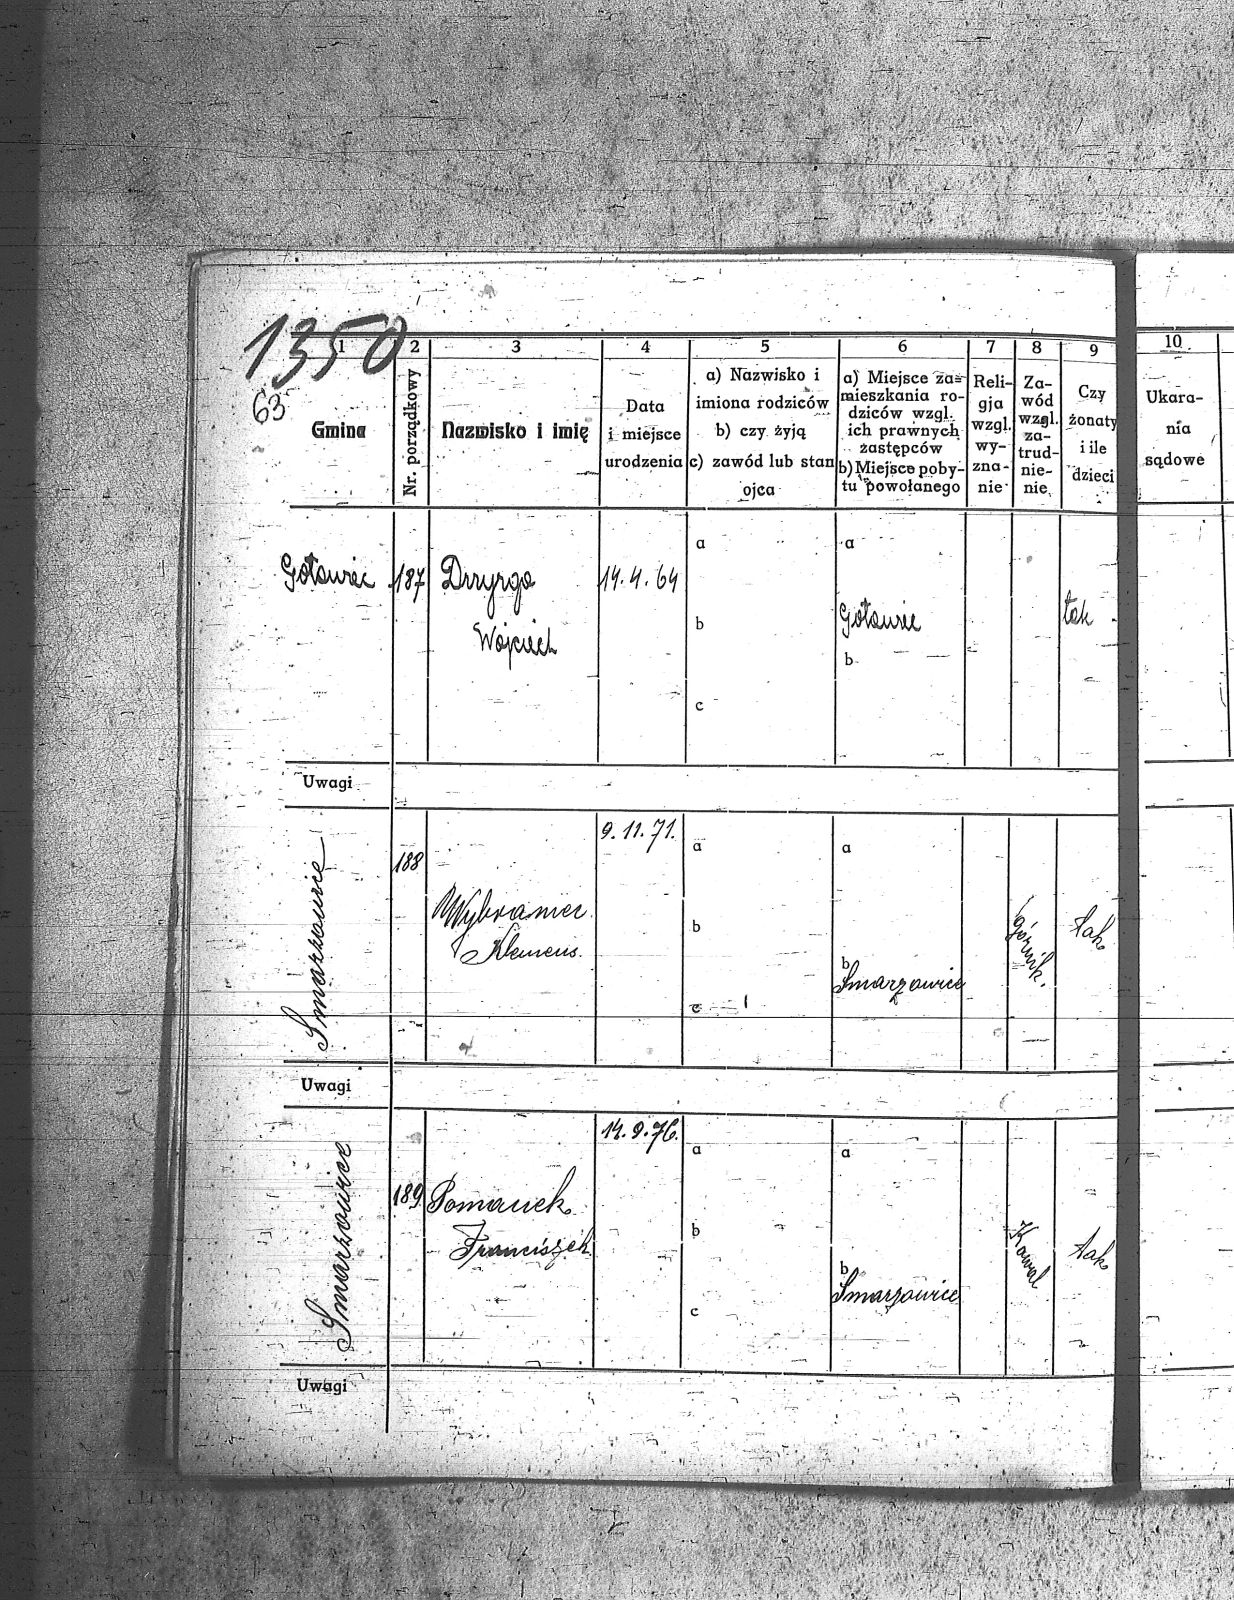 1350
63
1 2 3 4 5 6 7 8 9 10
Gmina
Nr. porządkowy
Nazwisko i imię
Data
i miejsce
urodzenia
a) Nazwisko i
imiona rodziców
b) czy żyją
c) zawód lub stan
ojca
a) Miejsce za-
mieszkania ro-
dziców wzgl.
ich prawnych
zastępców
b) Miejsce poby-
tu powołanego
Reli-
gja
wzgl.
wy-
zna-
nie
Za-
wód
wzgl.
za-
trud-
nie-
nie
Czy
żonaty
i ile
dzieci
Ukara-
nia
sądowe
187
Wojciech
14.4.64
a
b
c
a
b
tak
Uwagi
Smarzowice
188
Wybraniec
Klemens.
9.11.71.
a
b
c
a
b
Smarzowice
górnik.
tak
Uwagi
Smarzowice
189
Franciszek
14.9.76.
a
b
c
a
b
Smarzowice
Kowal
tak
Uwagi